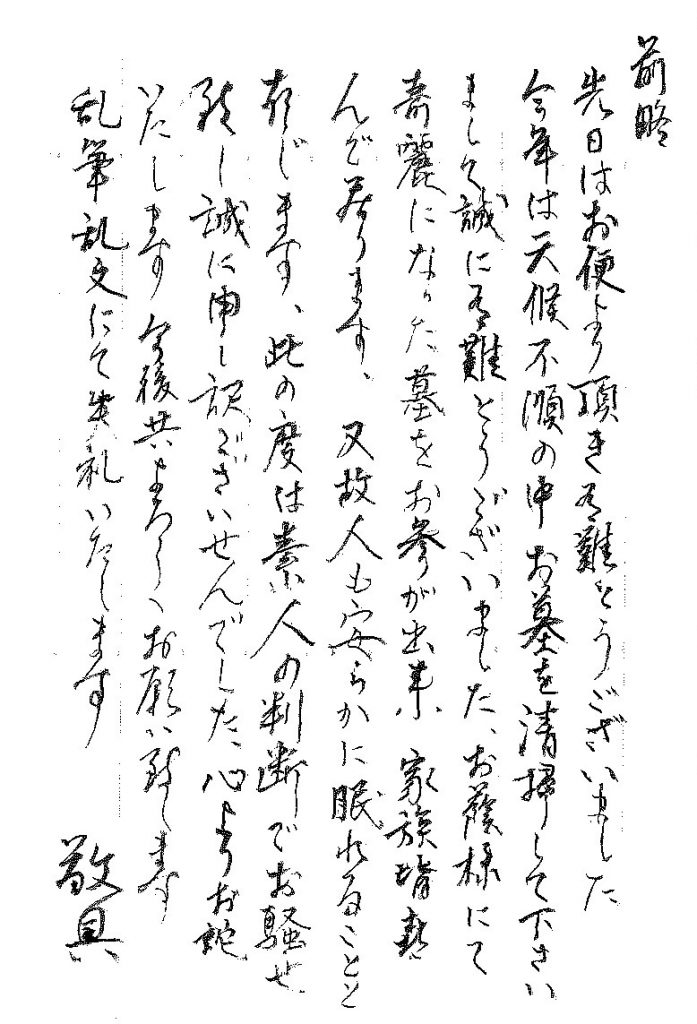 前略
先日はお便より頂き有難とうございました
今年は天候不順の中お墓を清掃して下さい
まして誠に有難とうございました、お蔭様にて
奇麗になった墓をお参が出来 家族皆喜
んで居ります、又故人も安らかに眠れることと
存じます、此の度は素人の判断でお騒せ
致し誠に申し訳ございせんでした、心よりお詫
いたします 今後共よろしくお願い致します
乱筆乱文にて失礼いたします
敬具